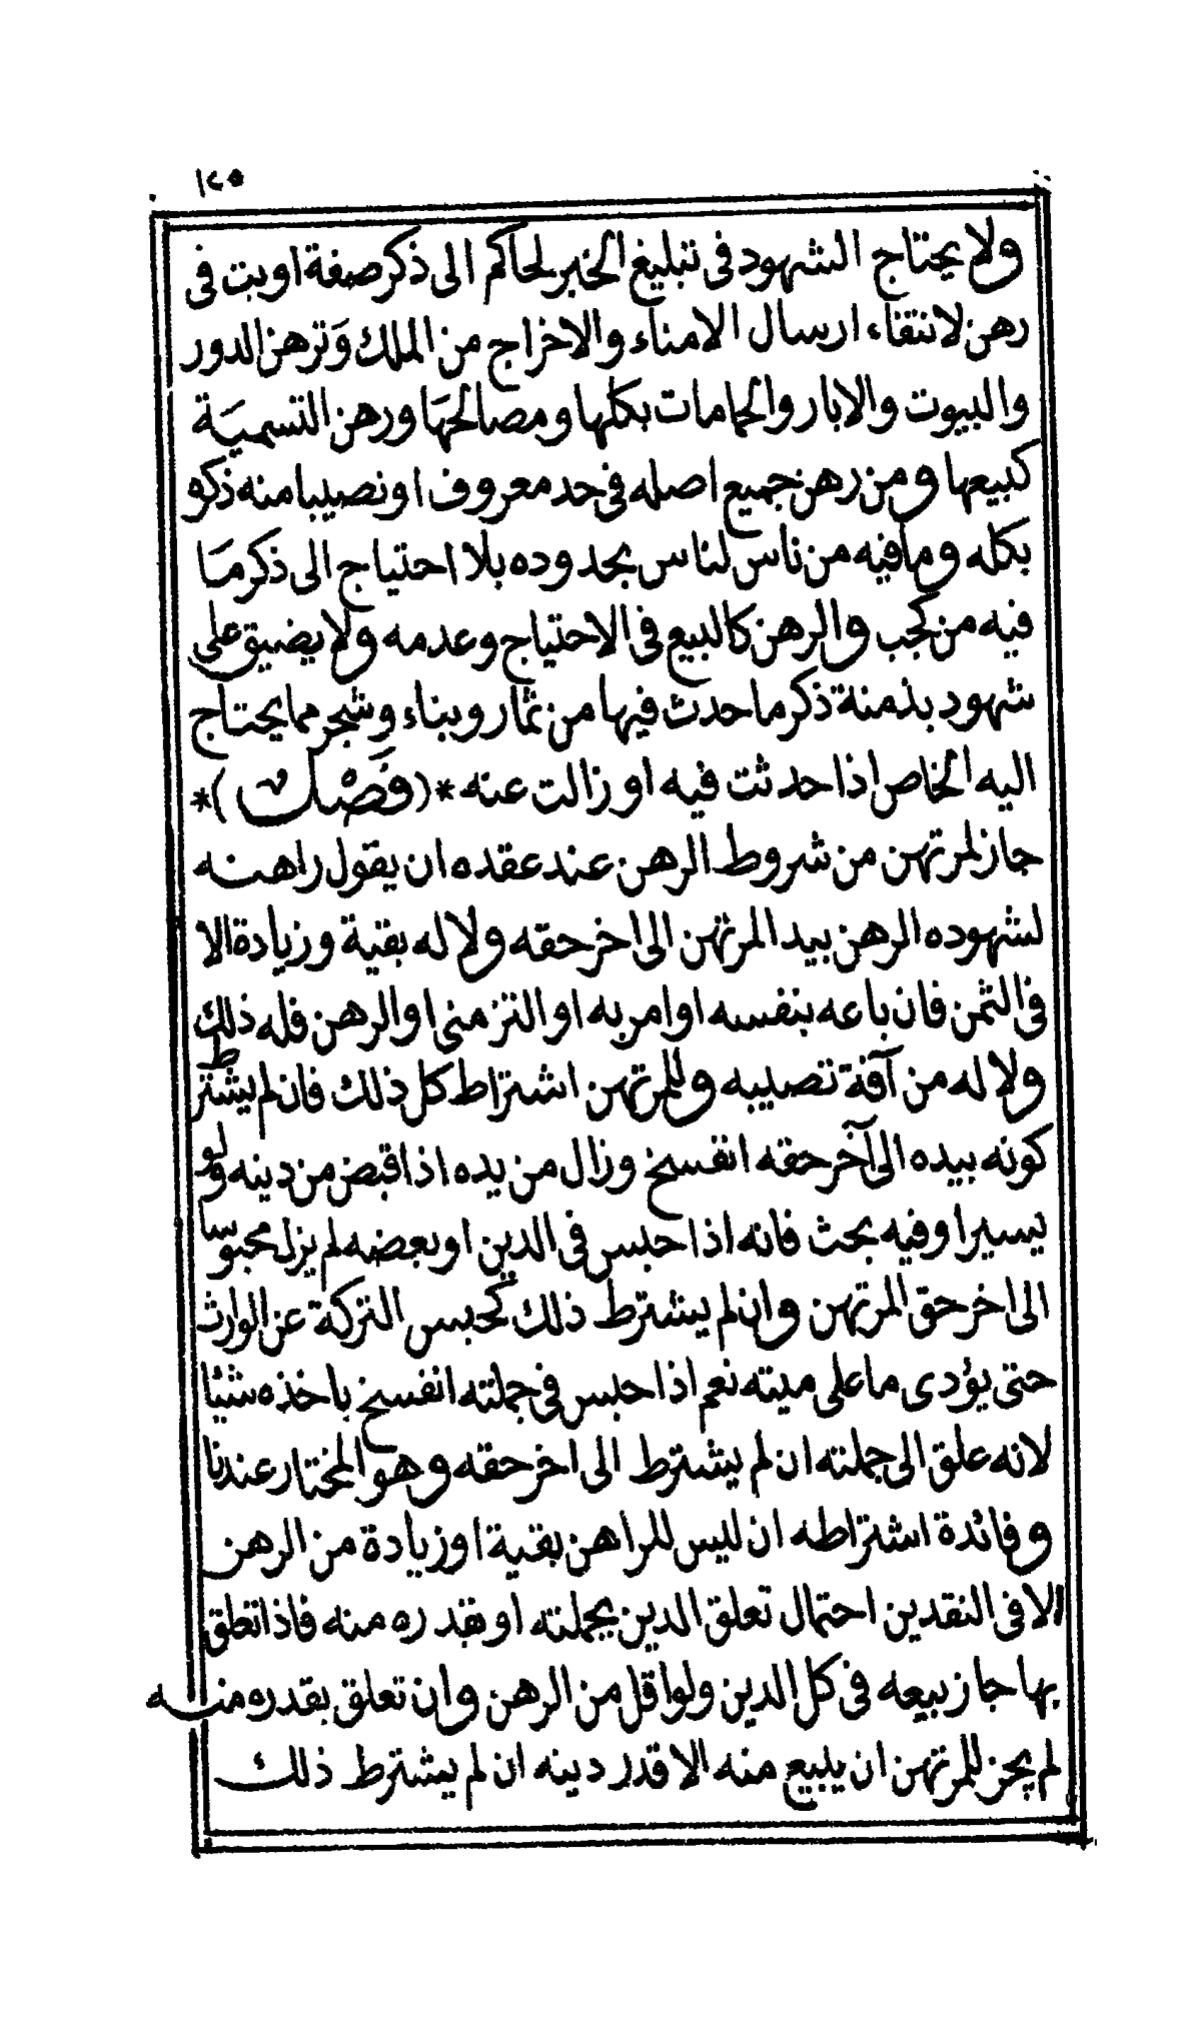 ١٢٥
ولا يحتاج الشهود فى تبليغ الخبر لحاكم الى ذكر صفة او بت فى
رهن لانتفاء ارسال الامناء والاخراج من الملك وَترهن الدور
والبيوت والابار والحمامات بكلها ومصالحهَا ورهن التسميَة
كبيعها ومن رهن جميع اصله فى حد معروف او نصيبا منه ذكره
بكله ومافيه من ناس لناس بحدوده بلا احتياج الى ذكر مَا
فيه من كجب والرهن كالبيع فى الاحتياج وعدمه ولا يضيق على
شهود بذمنة ذكر ما حدث فيها من ثمار وبناء وشجر مما يحتاج
اليه الخاص اذا حدثت فيه او زالت عنه *(فَصْل)*
جاز لمرتهن من شروط الرهن عند عقده ان يقول راهنه
لشهوده الرهن بيد المرتهن الى اخر حقه ولا له بقية وزيادة الا
فى الثمن فان باعه بنفسه او امر به او التزمنى او الرهن فله ذلك
ولا له من آفة تصيبه وللمرتهن اشتراط كل ذلك فان لم يشترط
كونه بيده الى آخر حقه انفسخ وزال من يده اذا قبض من دينه ولو
يسيرا وفيه بحث فانه اذا حبس فى الدين او بعضه لم يزل محبوسا
الى اخر حق المرتهن وان لم يشترط ذلك كحبس التركة عن الوارث
حتى يؤدى ما على ميته نعم اذا حبس فى جملته انفسخ باخذه شيئا
لانه علق الى جملته ان لم يشترط الى اخر حقه وهو المختار عندنا
وفائدة اشتراطه ان ليس للراهن بقية او زيادة من الرهن
الا فى النقدين احتمال تعلق الدين بجملته او بقدره منه فاذا تعلق
بها جاز بيعه فى كل الدين ولو اقل من الرهن وان تعلق بقدره منه
لم يجز للمرتهن ان يبيع منه الا قدر دينه ان لم يشترط ذلك